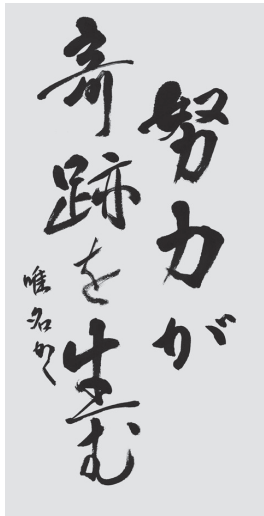 努力が
奇跡を生む
唯名